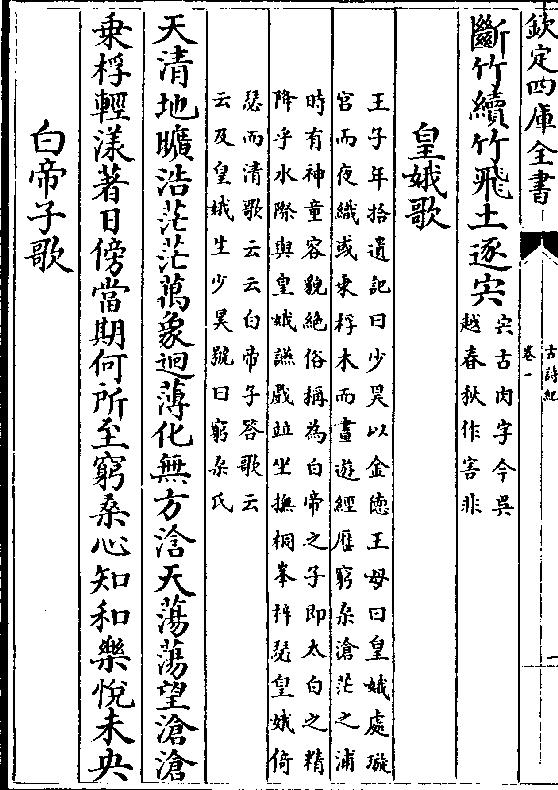 欽定四庫全書
古詩紀
卷一
斷竹續竹飛土逐宍
宍古肉字今吳
越春秋作害非
皇娥歌
王子年拾遺記曰少昊以金徳王母曰皇娥處璇
宮而夜織或乗桴木而晝遊經歴窮桑滄茫之浦
時有神童容貌絶俗稱為白帝之子即太白之精
降乎水際與皇娥讌戲並坐撫桐峯梓瑟皇娥倚
瑟而清歌云云白帝子答歌云
云及皇娥生少昊號曰窮桑氏
天清地曠浩茫茫萬象迴薄化無方浛天蕩蕩望滄滄
乗桴輕漾著日傍當期何所至窮桑心知和樂悅未央
白帝子歌